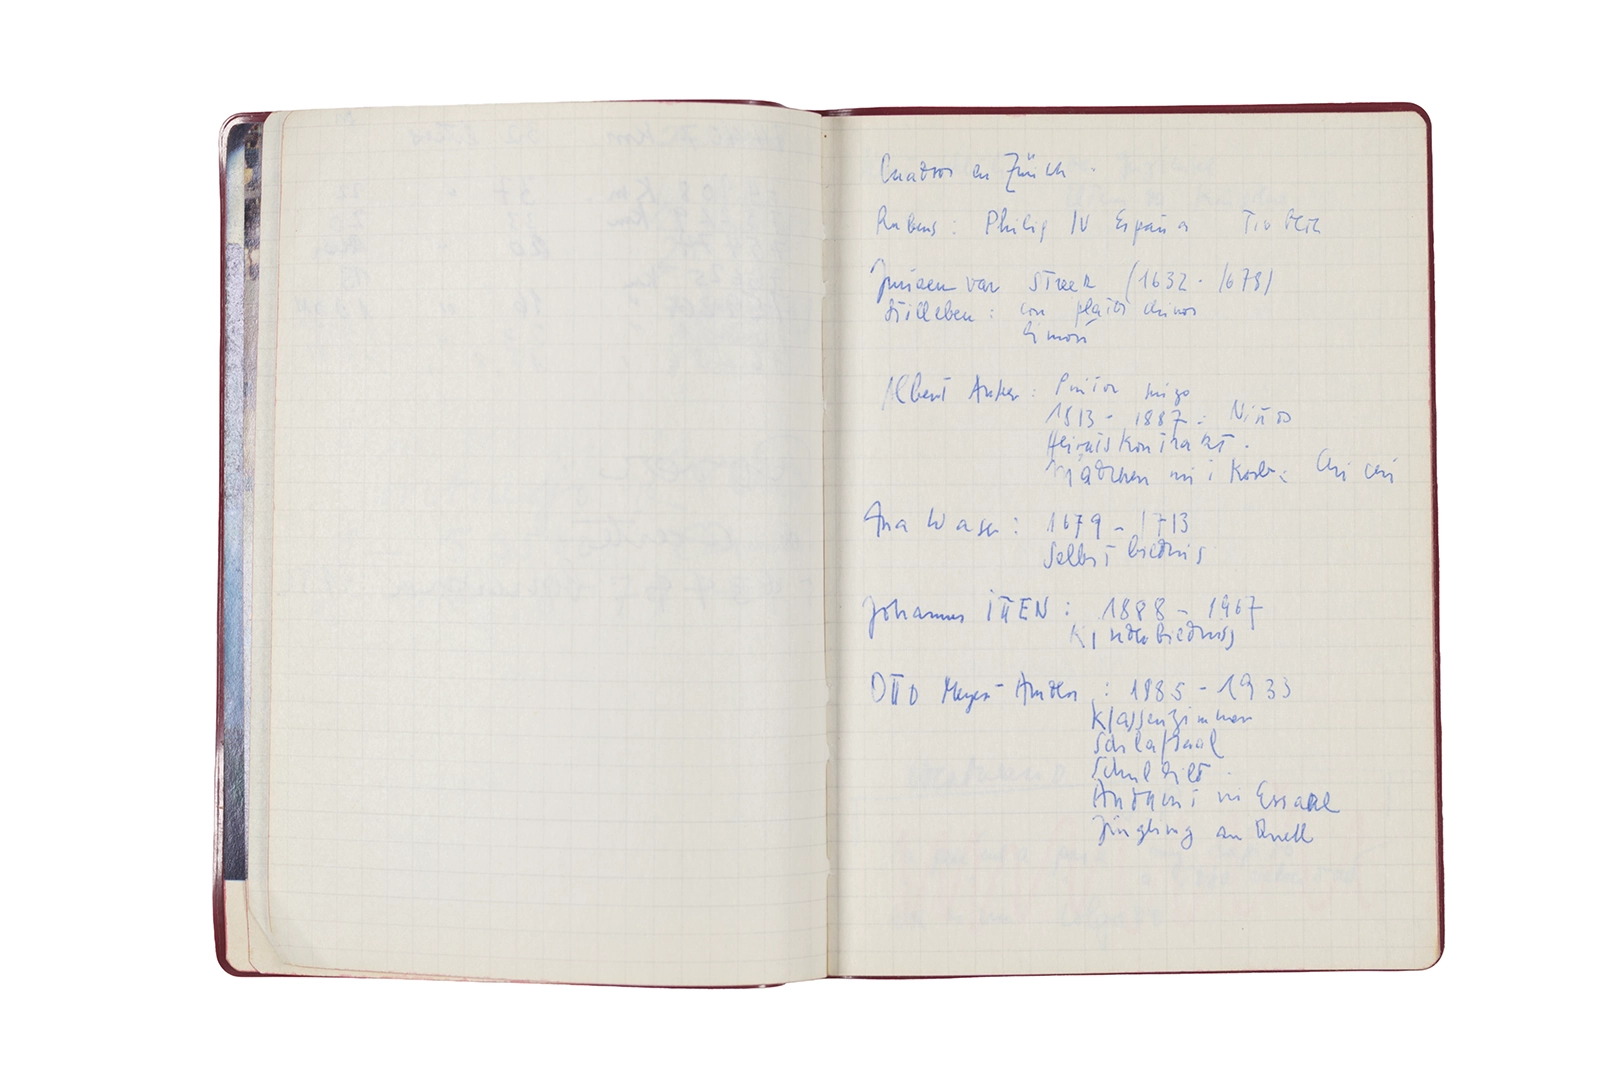 Cuadros en Zürich.
Rubens: Philip IV España
Juriaen van Streek (1632 - 1678)
Stilleben: con plato chinos
limon
Albert Anker: Pintor suizo
1813 - 1887: Niños
Heiratskontrakt.
Mädchen mit Korb:
Ana Waser: 1679 - 1713
Selbstbiednis
Johannes ITTEN: 1888 - 1967
Kinderbiednis
OTTO Meyer-Amden: 1885 - 1933
Klassenzimmer
Schlafsaal
Schulbild
Andacht im Essaal
Jüngling am Quell